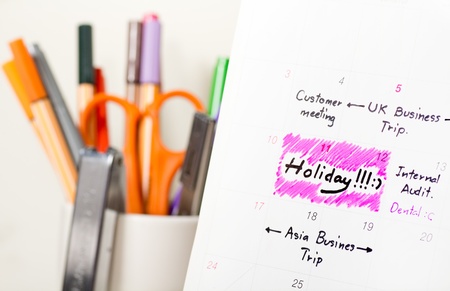 3 4 5
Customer meeting ← UK Business Trip. →
10 11 12
Holiday!!!:)
Internal Audit.
Dental :C
17 18 19 20
← Asia Busines Trip →
24 25